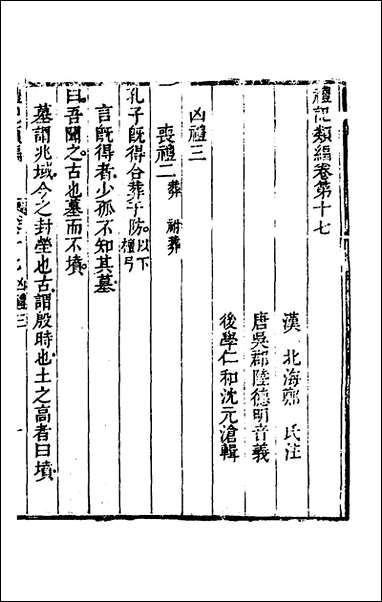 禮記類編卷第十七
漢 北海鄭 氏注
唐吳郡陸德明音義
後學仁和沈元滄輯
凶禮三
喪禮二 葬 祔葬
孔子既得合葬于防。以下檀弓
言既得者少孤不知其墓
曰吾聞之古也墓而不墳。
墓謂兆域今之封塋也古謂殷時也土之高者曰墳
凶禮三
一